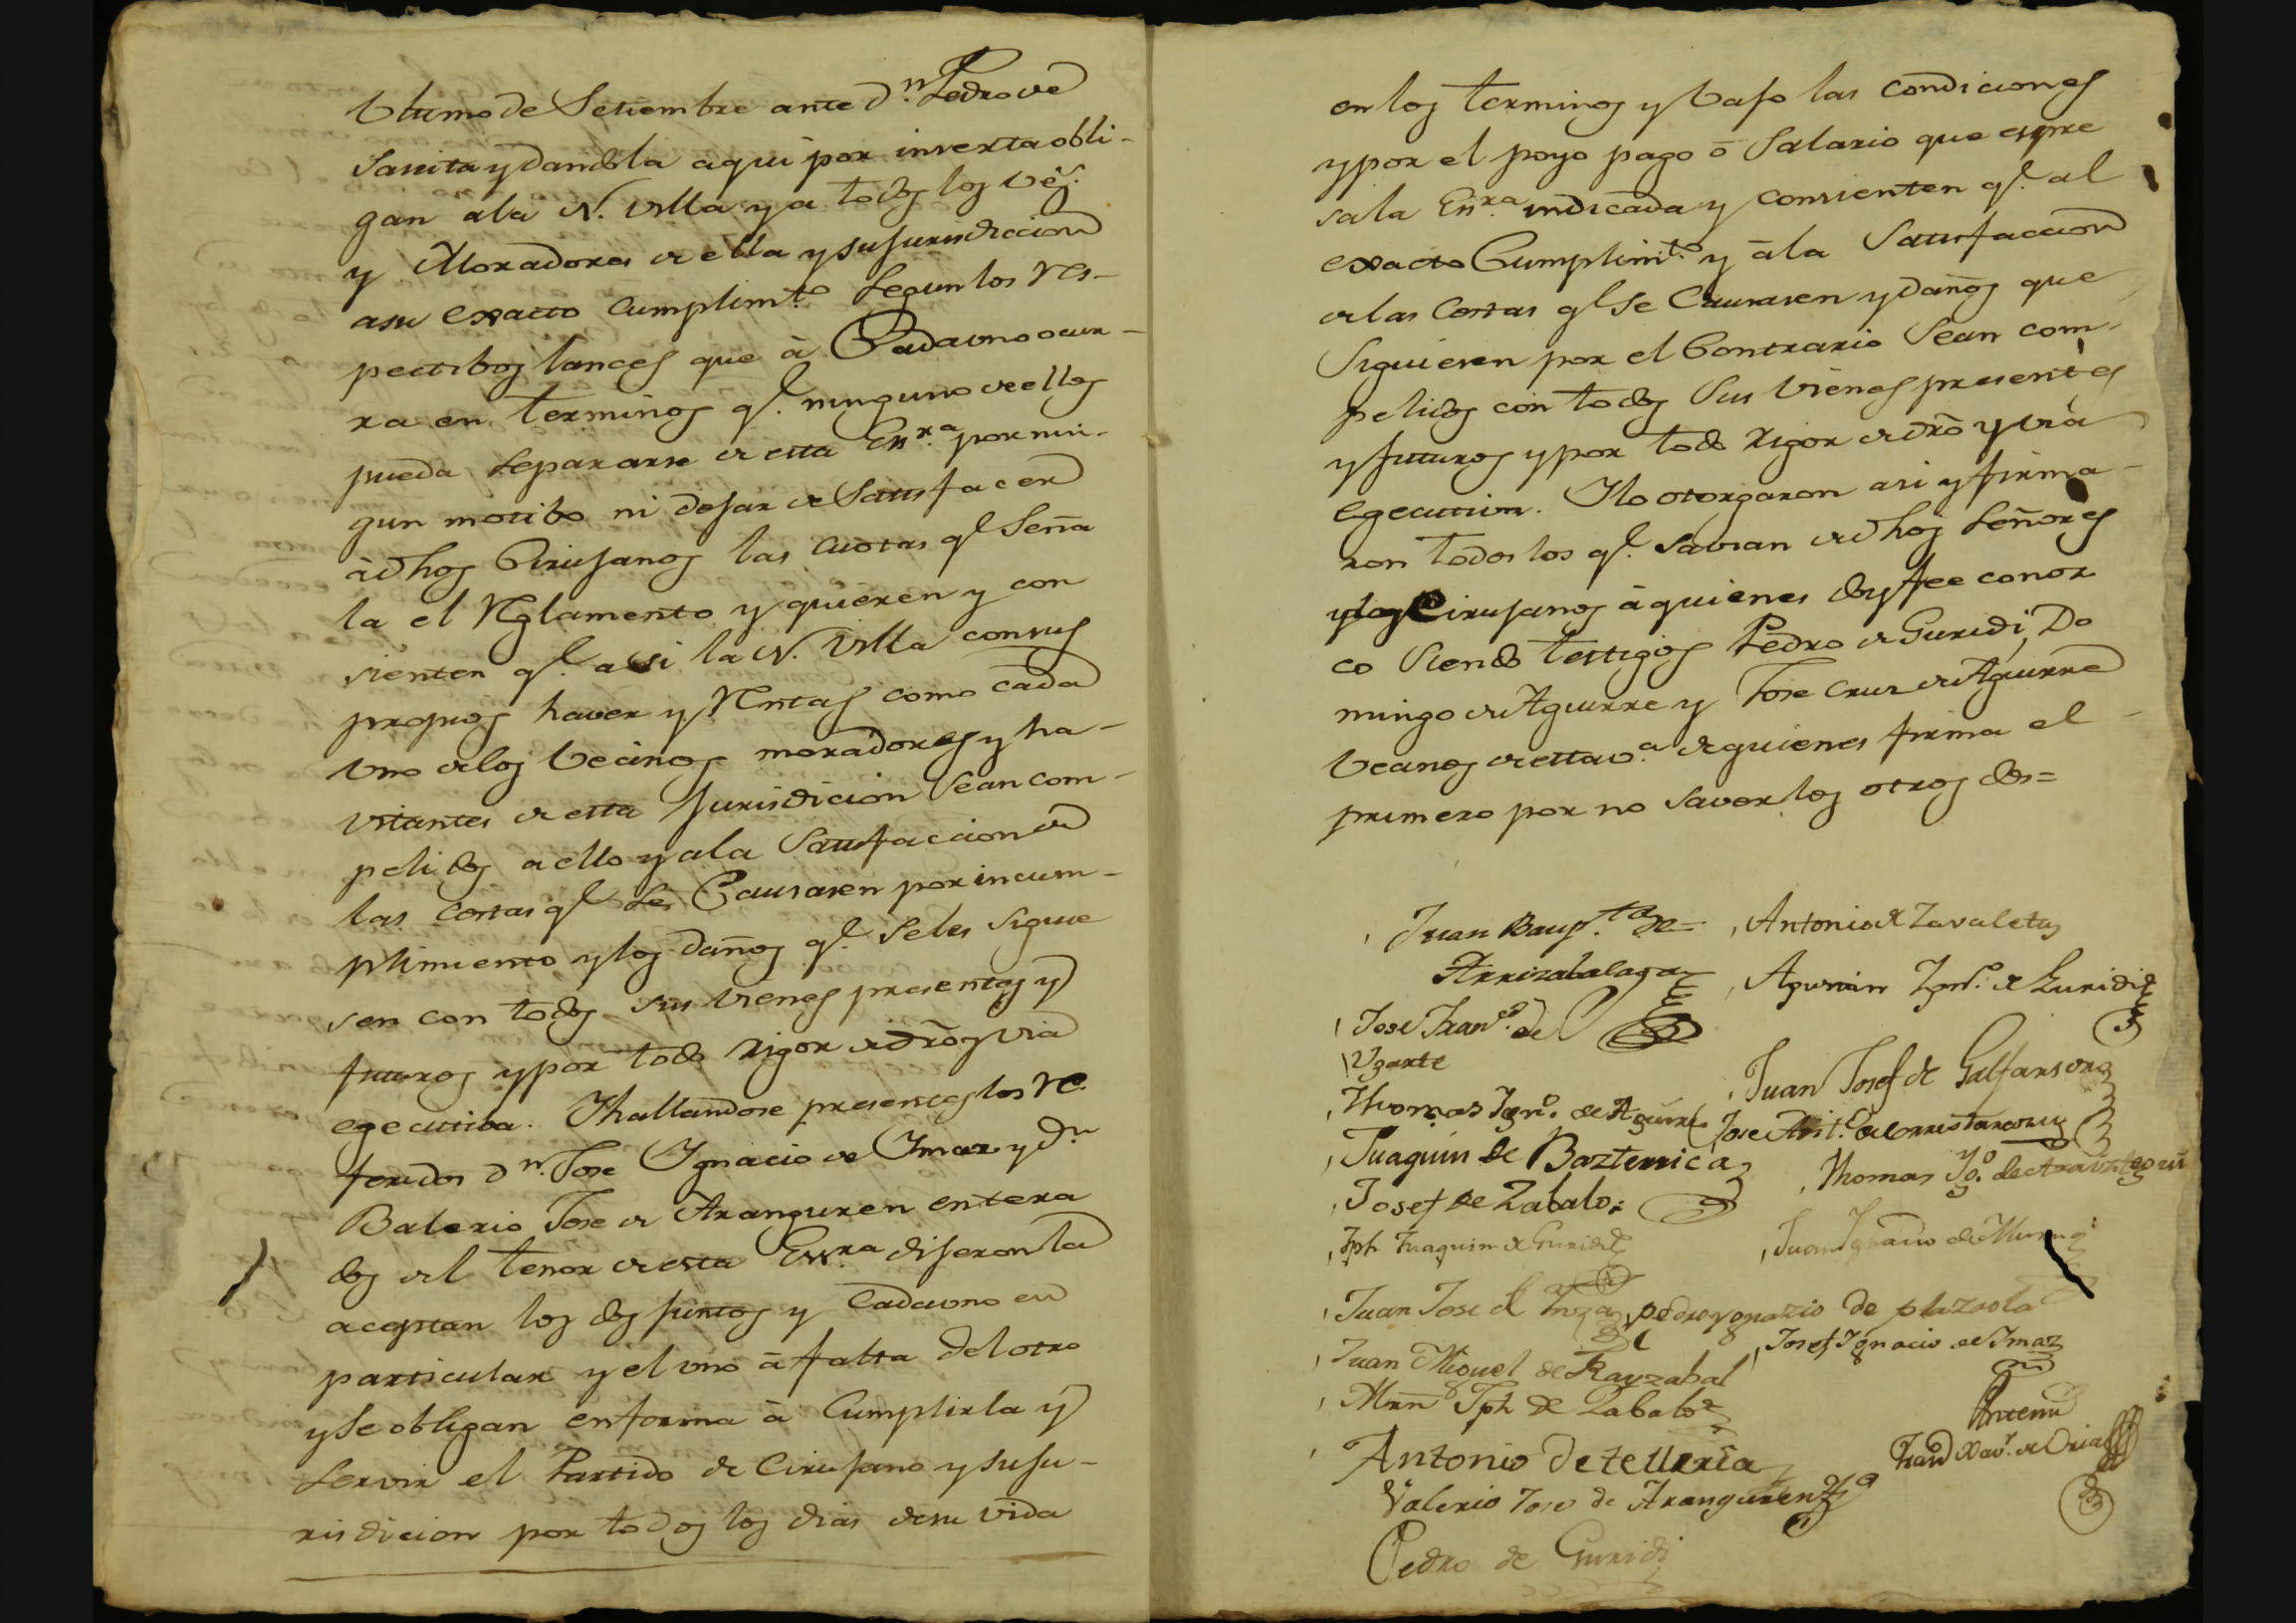 Ultimo de Setiembre ante Dn. Pedro de
Sarrita y dandola aqui por inxerta obli-
gan ala N. Villa y a todos los veſ.
y Moradores de ella y su Jurisdiccion
asu exacto Cumplimto. Segun los res-
pectibos lances que à Cada uno ocur-
ra en terminos q.e ninguno de ellos
pueda Separarse de esta Essra. por nin-
gun motibo ni dejar de Satisfacer
à dhos Cirujanos las cuotas q.e Seña
la el Reglamento y quieren y con
sienten q.e asi la N. Villa con sus
propios haver y Rentas como cada
Uno de los Vecinos moradores y ha-
vitantes de esta Jurisdicion Sean com-
pelidos a ello y ala Satisfacion de
las Costas q.e Se Causaren por incum-
plimiento y los Daños q.e Seles Sigue
sen con todos sus vienes presentes y
futuros y por todo rigor de dro y via
egecutiba. Y hallandose presentes los re
feridos Dn. Jose Ignacio de Imaz y Dn
Balerio Jose de Aranguren entera
dos del tenor de esta Essra. dijeron la
aceptan los dos juntos y Cada uno en
particular y el uno à falta del otro
y Se obligan en forma à Cumplirla y
Servir el Partido de Cirujano y su Ju-
risdicion por todos los dias de su vida
en los terminos y bajo las condiciones
y por el poyo pago ó Salario que expre
sa la Essra. indicada y consienten q.e al
exacto Cumplimto. y à la Satisfaccion
de las Costas q.e Se Causasen y daños que
Siguieren por el Contrario Sean com-
pelidos con todos Sus vienes presentes
y futuros y por todo rigor de dro y via
egecutiva. Y lo otorgaron asi y firma-
ron todos los q.e savian de dhos Señores
y los Cirujanos à quienes doy fee conoz
co siendo testigos Pedro de Guridi, Do
mingo de Aguirre y Jose Cruz de Aguirre
Vecinos de esta va. de quienes firma el
primero por no saver los otros dos=
Juan Baupta. de= Antonio de Zavaleta
Arrizabalaga Agustin Ygno. de Guridi
Jose Franco. de
Ugarte Juan Josef de Galfarsoro
Thomas Igno. de Aguirre Jose Anto. de
Juaquin de Bazterrica Thomas Ygo. de Arauiztegui
Josef de Zabalo
Jph Juaquin de Guridi Juan Ygnacio de
Juan Jose de Inza pedro ygnazio de plazaola
Juan Miguel de Rayzabal Josef Ygnacio de Imaz
Mrn Jph de Zabalo Ante mi
Antonio de telleria Franco Xavr. de Oria
Valerio Jose de Aranguren
Pedro de Guridi